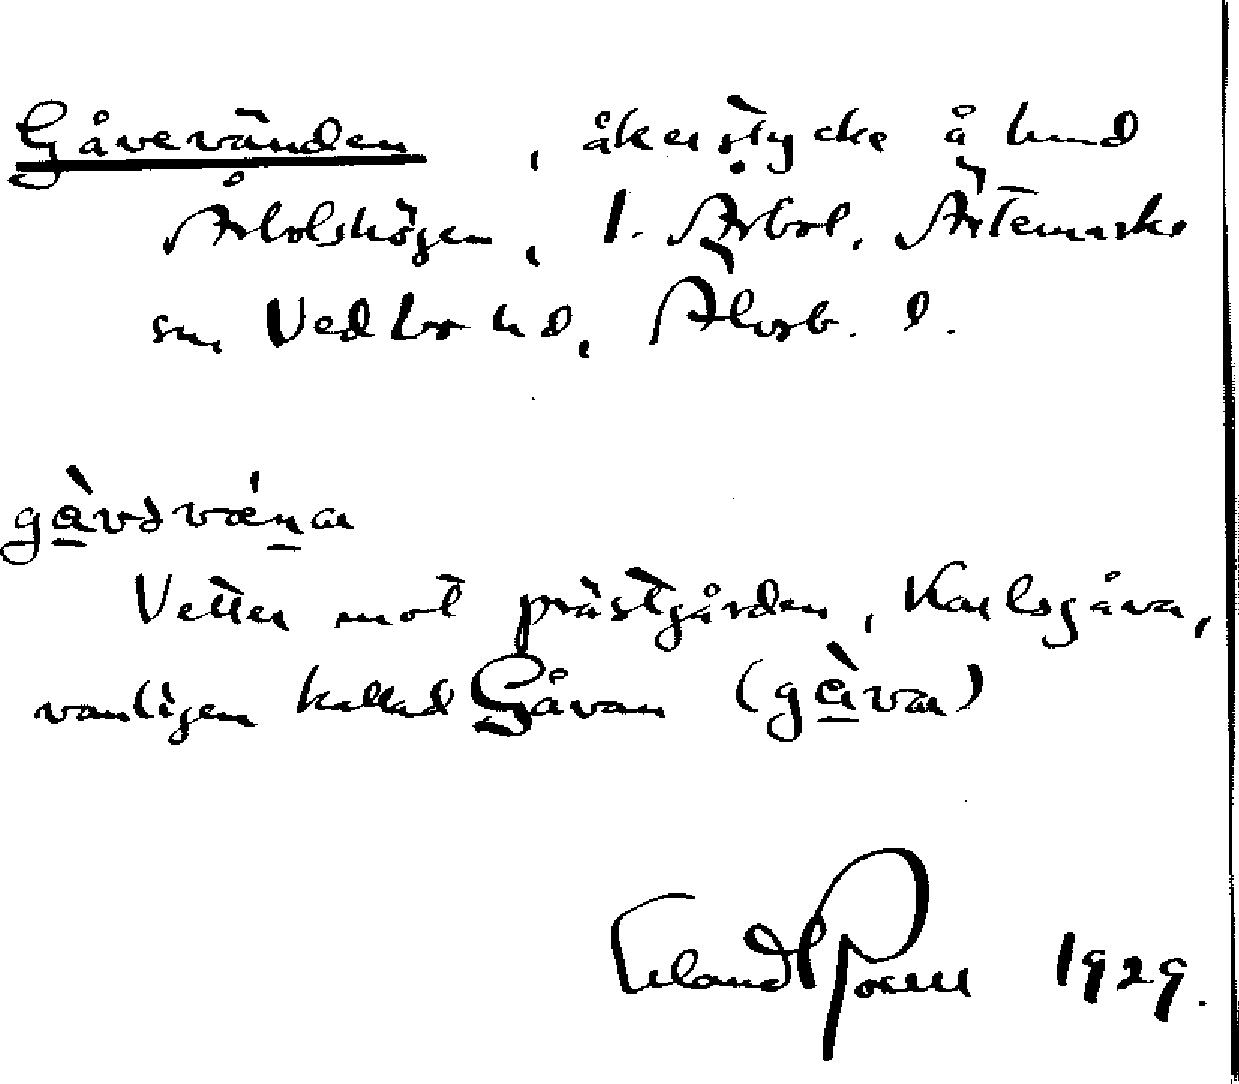 Gåvevänden, åkerstycke å hmd
Årbolshögen, 1. Årbol, Ärtemarks
sn, Vedbo hd, Älvsb. l.
gåvəväṇan
Vetter mot prästgården, Karlsgåva,
vanligen kallad Gåvan (gåvan)
Erland Rosell 1929.